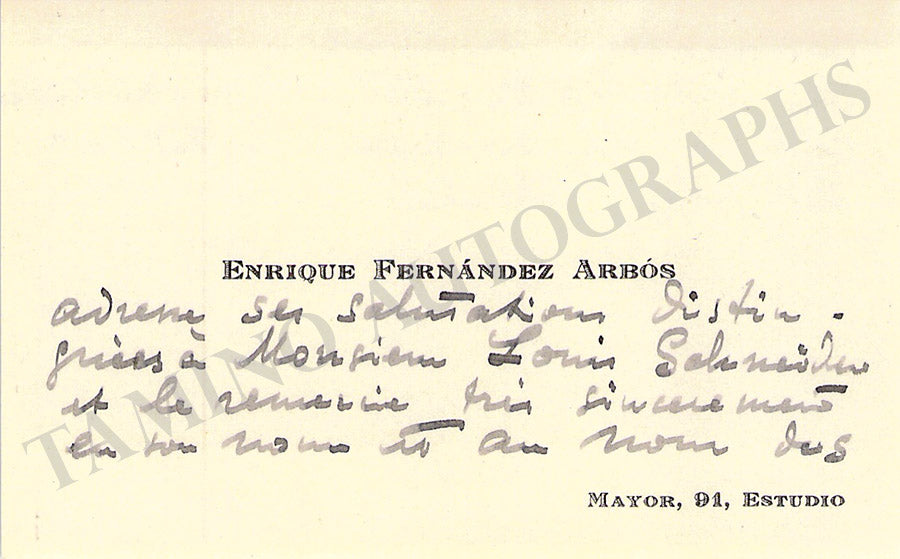 ENRIQUE FERNÁNDEZ ARBÓS
adresse ses salutations distin-
guées à Monsieur Louis Schneider
et le remercie très sincèrement
en son nom et au nom des
MAYOR, 91, ESTUDIO
TAMINO AUTOGRAPHS